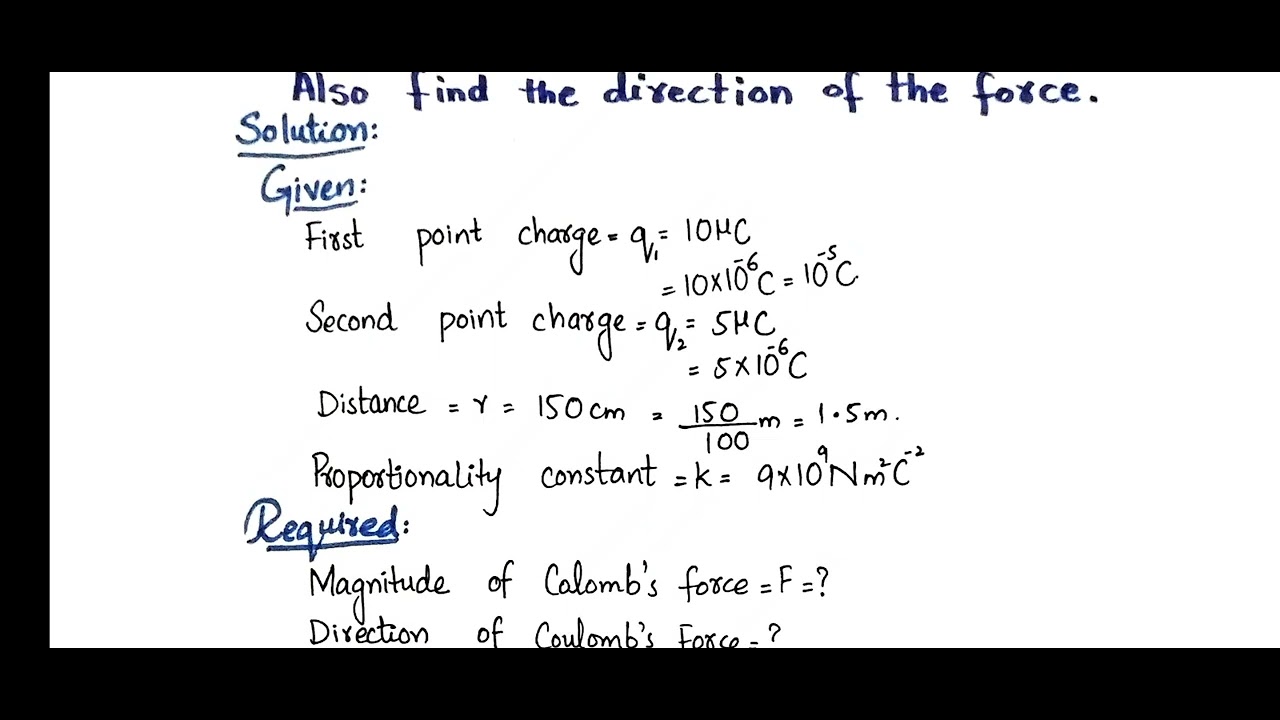 Also find the direction of the force.
Solution:
Given:
First point charge = q₁ = 10μC
= 10×10⁻⁶C = 10⁻⁵C
Second point charge = q₂ = 5μC
= 5×10⁻⁶C
Distance = r = 150 cm = 150/100 m = 1.5m.
Proportionality constant = k = 9×10⁹Nm²C⁻²
Required:
Magnitude of Calomb's force = F = ?
Direction of Coulomb's Force = ?